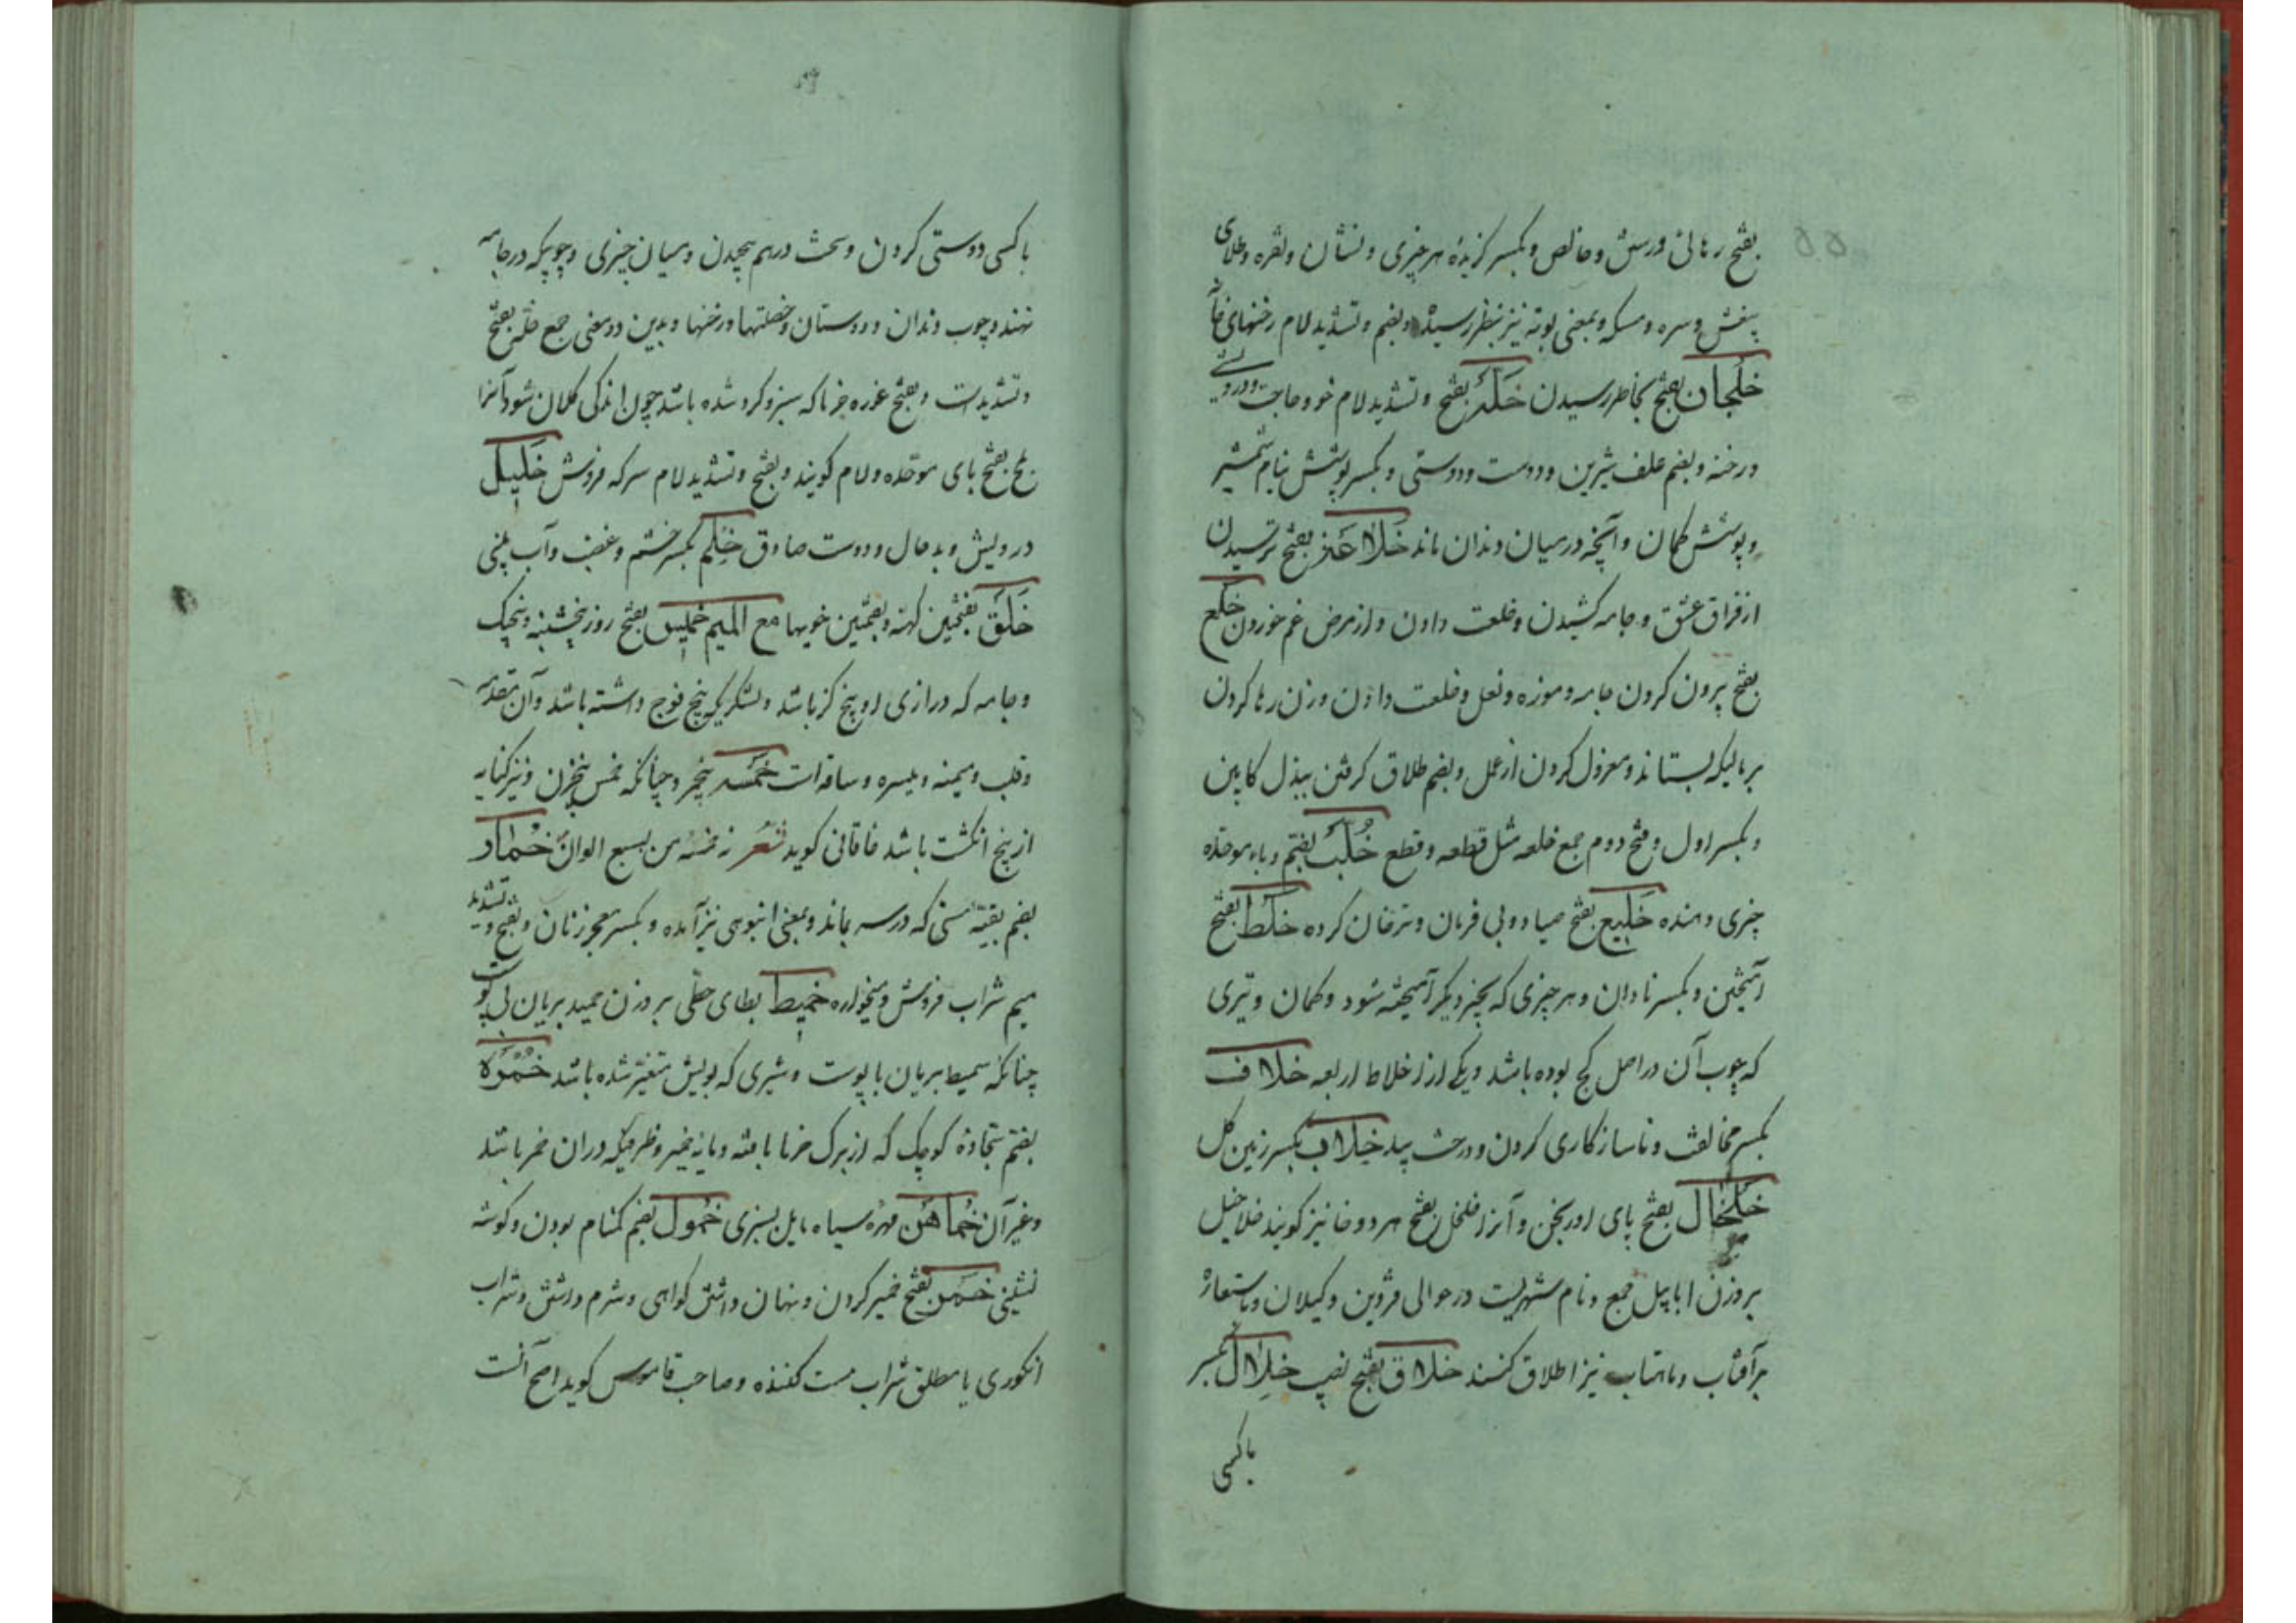 بفتح رهائی و رستن و خالص و بکسر گزیدهٔ هر چیزی و نشان و نقره و طلای
بیغش و سره و مسکه و بمعنی بوته نیز بنظر رسیده و بضم و تشدید لام رخنهای
خلجان بفتح بخاطر رسیدن خلّه بفتح و تشدید لام خو و حاجت و درویشی
و رخنه و بضم علف شیرین و دوست و دوستی و بکسر پوشش نیام شمشیر
و پوشش کمان و آنچه در میان دندان ماند خلاعة بفتح ترسیدن
از فراق عشق و جامه کشیدن و خلعت دادن و از مرض غم خوردن خلع
بفتح بیرون کردن جامه و موزه و نعل و خلعت دادن و زن رها کردن
بر مالیکه بستاند و معزول کردن از عمل و بضم طلاق گرفتن ببذل کابین
و بکسر اول و فتح دوم جمع خلعه مثل قطعه و قطع خلب بضم و باء موحده
چیزی دهنده خلیع بفتح صیاد و بی فرمان و ترفان کرده خلط بفتح
آمیختن و بکسر نادان و هر چیزی که بچیز دیگر آمیخته شود و کمان و تیری
که چوب آن در اصل کج بوده باشد و یکی از اخلاط اربعه خلاف
بکسر مخالفت و ناسازکاری کردن و درخت بید خلاب بکسر زمین کل
خلخال بفتح پای اورنجن و آنرا خلخل بفتح هر دو خا نیز کویند خلاخیل
بر وزن ابابیل جمع و نام شهریست در حوالی قزوین و کیلان و باستعاره
بر آفتاب و ماهتاب نیز اطلاق کنند خلاق بفتح نصیب خلال بکسر
باکسی
باکسی دوستی کردن و سخت درهم پیچیدن و میان چیزی و چوبیکه در جامه
نهند و چوب دندان و دوستان و خصلتها و رخنها و بدین دو معنی جمع خلّه بفتح
و تشدیدست و بفتح غوره خرما که سبز و کرد شده باشد چون اندکی کلان شود آنرا
بلح بفتح بای موحده و لام کویند و بفتح و تشدید لام سرکه فروش خلیل
درویش و بدحال و دوست صادق خلم بکسر خشم و غضب و آب بینی
خلق بفتحتین کهنه و بضمتین خویها مع المیم خمیس بفتح روز پنجشنبه و پنجیک
و جامه که درازی او پنج کز باشد و لشکریکه پنج فوج داشته باشد و آن مقدمه
و قلب و میمنه و میسره و ساقه است خمسه پنج مرد چنانکه خمس پنج زن و نیز کنایه
از پنج انکشت باشد خاقانی کوید شعر نه خمسه من بسبع الوان خمار
بضم بقیّه مستی که در سر بماند و بمعنی انبوهی نیز آمده و بکسر معجر زنان و بفتح و تشدید
میم شراب فروش و میخواره خمیط بطای حطّی بر وزن عمید بریان بی پوست
چنانکه سمیط بریان با پوست و شیری که بویش متغیّر شده باشد خمره
بضم سجّاده کوچک که از برک خرما بافته و مایه خمیر و ظرفیکه در ان خمر باشد
و غیر آن خماهن مهره سیاه مایل بسبزی خمول بضم کمنام بودن و کوشه
نشینی خمر بفتح خمیر کردن و پنهان داشتن کواهی و شرم داشتن و شراب
انکوری یا مطلق شراب مست کننده و صاحب قاموس کوید اصح آنست